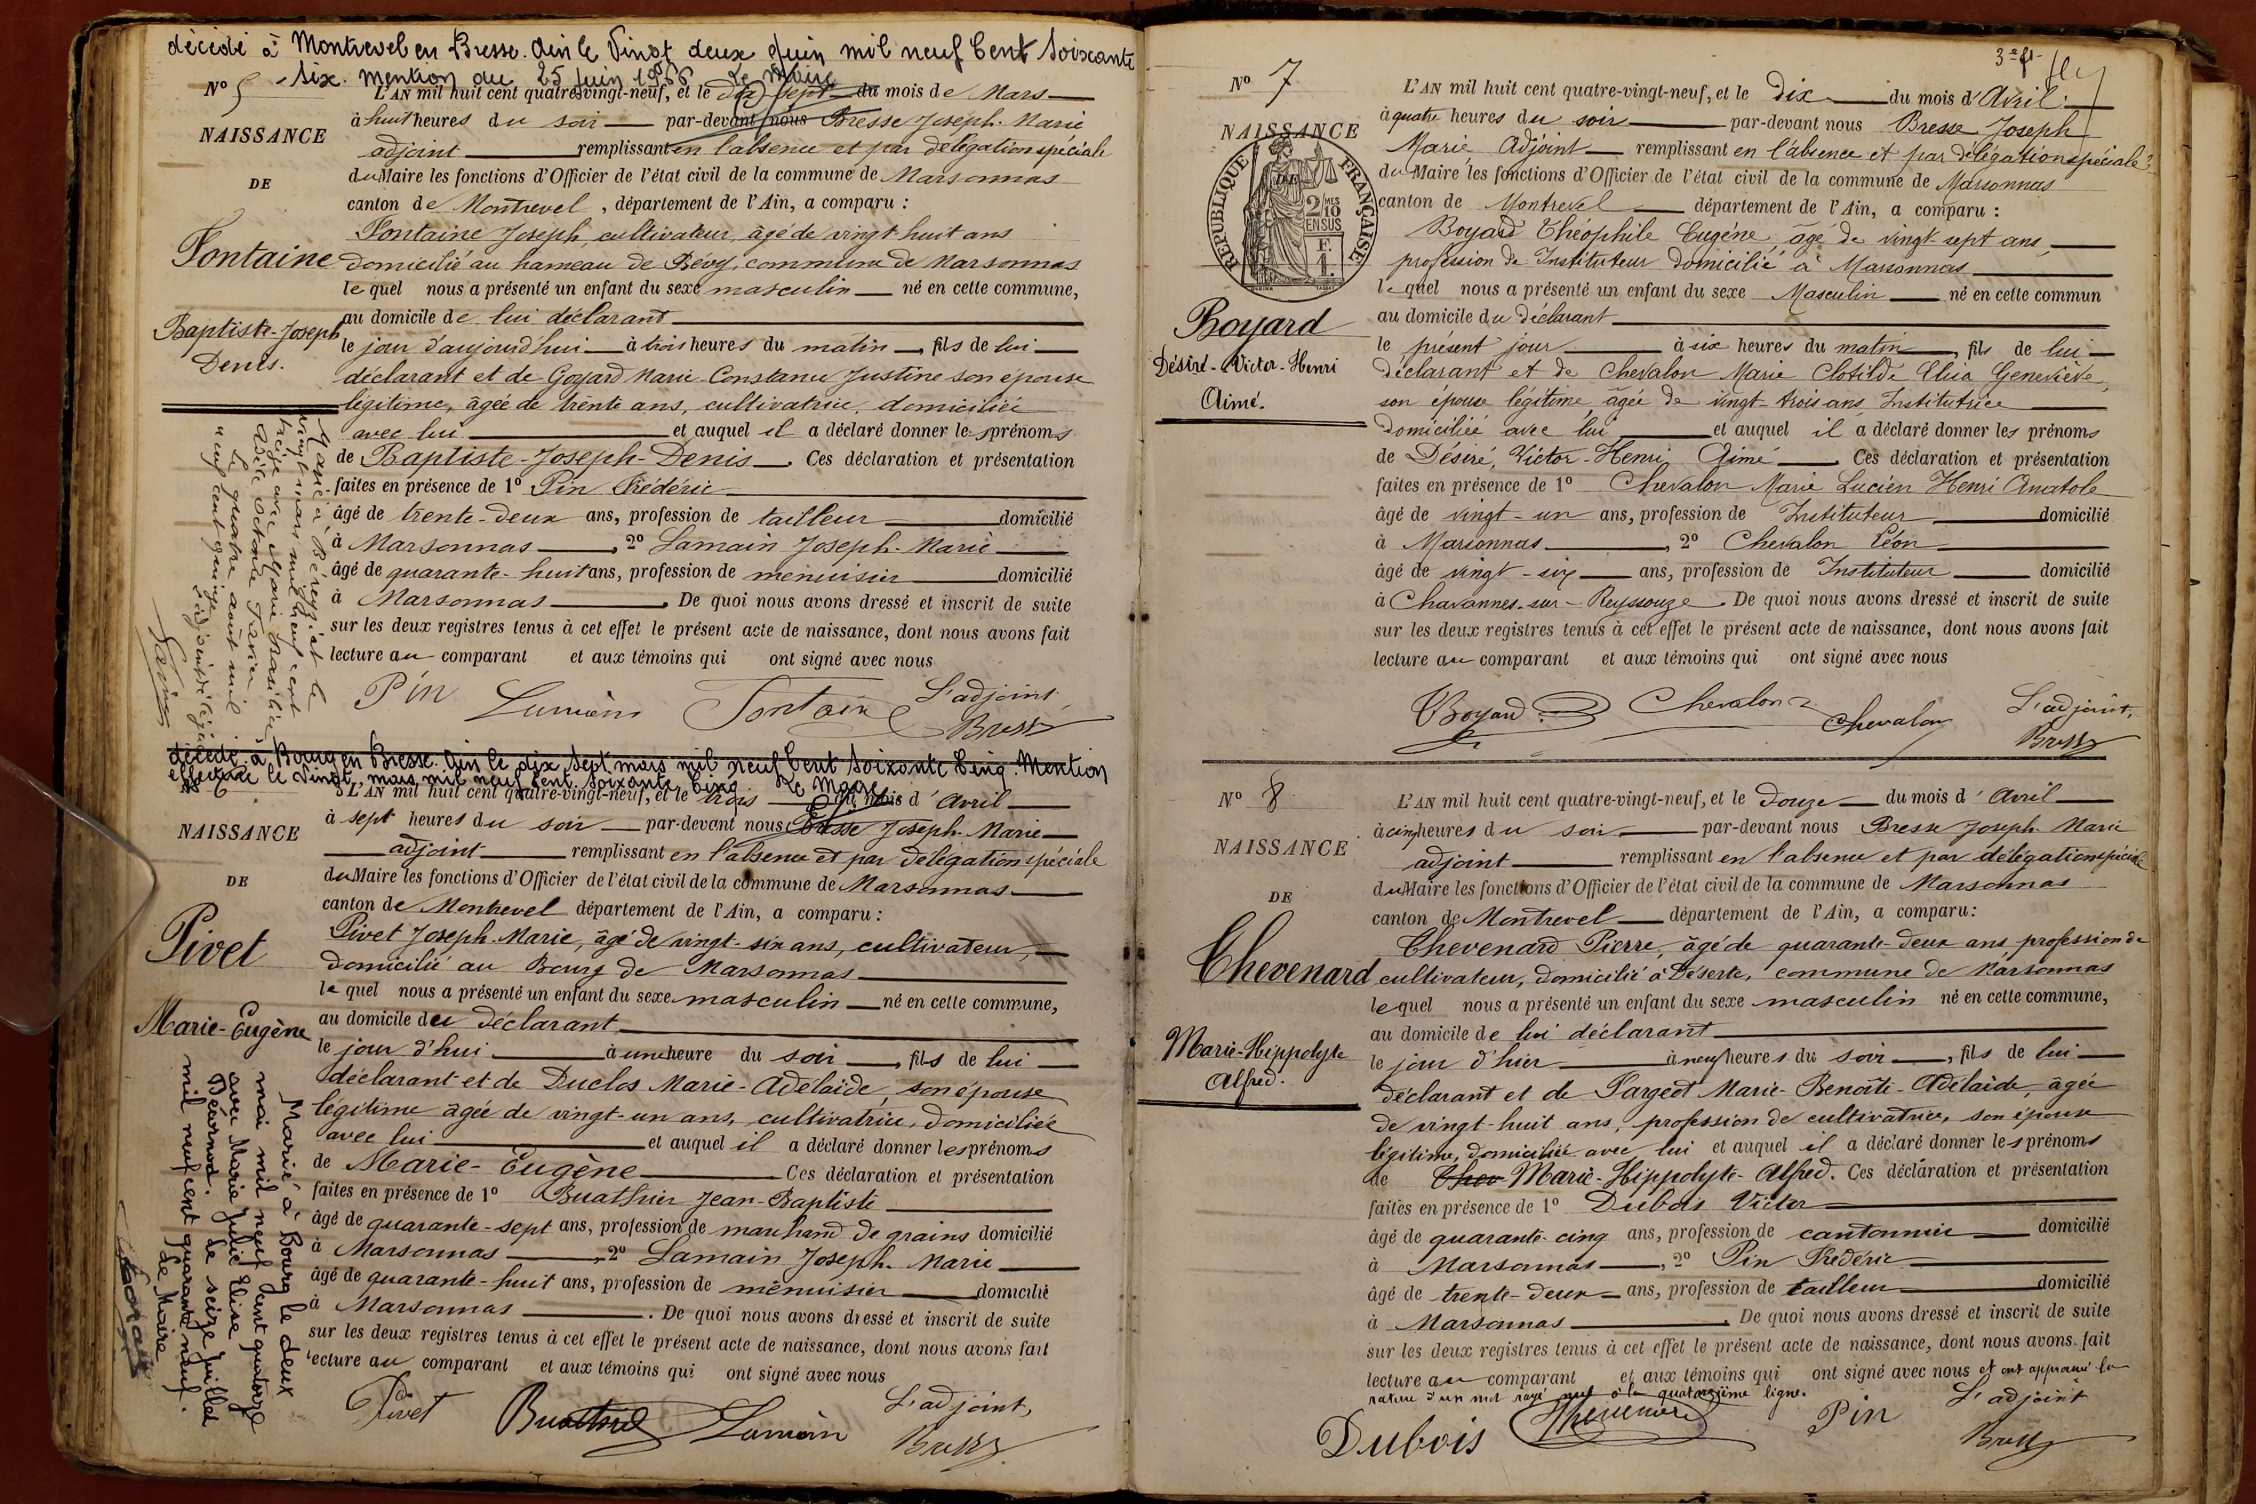 décédé à Montrevel en Bresse. Ain le Vingt deux Juin mil neuf Cent Soixante
six. Mention du 25 Juin 1966 Le Maire
Nº 5
NAISSANCE
DE
Fontaine
Baptiste-Joseph
Denis.
L'AN mil huit cent quatre-vingt-neuf, et le dix sept du mois de Mars
à huit heures du soir par-devant nous Bresse Joseph-Marie
adjoint remplissant en l'absence et par délégation spéciale
du Maire les fonctions d'Officier de l'état civil de la commune de Marsonnas
canton de Montrevel, département de l'Ain, a comparu :
Fontaine Joseph, cultivateur, âgé de vingt huit ans
domicilié au hameau de Bévy, commune de Marsonnas
lequel nous a présenté un enfant du sexe masculin né en cette commune,
au domicile de lui déclarant
le jour d'aujourd'hui à trois heures du matin, fils de lui
déclarant et de Goyard Marie Constance Justine son épouse
légitime, âgée de trente ans, cultivatrice, domiciliée
avec lui et auquel il a déclaré donner les prénoms
de Baptiste-Joseph-Denis. Ces déclaration et présentation
faites en présence de 1º Pin Frédéric
âgé de trente-deux ans, profession de tailleur domicilié
à Marsonnas, 2º Lamain Joseph-Marie
âgé de quarante-huit ans, profession de menuisier domicilié
à Marsonnas. De quoi nous avons dressé et inscrit de suite
sur les deux registres tenus à cet effet le présent acte de naissance, dont nous avons fait
lecture au comparant et aux témoins qui ont signé avec nous
Pin Lamain Fontaine L'adjoint,
Bresse
Marié à Béréyziat le
vingt mars mil neuf cent
treize avec Marie
Adèle Octavie
Le quatre août mil
neuf cent quinze
décédé à Bourg en Bresse. Ain le dix sept mars mil neuf Cent Soixante Cinq. Mention
effectuée le vingt mars mil neuf Cent Soixante Cinq Le Maire
Nº 6
NAISSANCE
DE
Pivet
Marie-Eugène
L'AN mil huit cent quatre-vingt-neuf, et le trois du mois d'Avril
à sept heures du soir par-devant nous Bresse Joseph-Marie
adjoint remplissant en l'absence et par délégation spéciale
du Maire les fonctions d'Officier de l'état civil de la commune de Marsonnas
canton de Montrevel département de l'Ain, a comparu :
Pivet Joseph-Marie, âgé de vingt-six ans, cultivateur,
domicilié au Bourg de Marsonnas
lequel nous a présenté un enfant du sexe masculin né en cette commune,
au domicile du déclarant
le jour d'hui à une heure du soir, fils de lui
déclarant et de Duclos Marie-Adélaïde, son épouse
légitime âgée de vingt-un ans, cultivatrice, domiciliée
avec lui et auquel il a déclaré donner les prénoms
de Marie-Eugène Ces déclaration et présentation
faites en présence de 1º Buathier Jean-Baptiste
âgé de quarante-sept ans, profession de marchand de grains domicilié
à Marsonnas, 2º Lamain Joseph-Marie
âgé de quarante-huit ans, profession de menuisier domicilié
à Marsonnas. De quoi nous avons dressé et inscrit de suite
sur les deux registres tenus à cet effet le présent acte de naissance, dont nous avons fait
lecture au comparant et aux témoins qui ont signé avec nous
Pivet Buathier Lamain L'adjoint,
Bresse
Marié à Bourg le deux
mai mil neuf cent quatorze
avec Marie Julie Elise
Dévornod. Le seize juillet
mil neuf cent quarante neuf.
Le Maire
3e f
Nº 7
NAISSANCE
DE
RÉPUBLIQUE FRANÇAISE
2/10 EN SUS
F.
1.
Boyard
Désiré-Victor-Henri
Aimé.
L'AN mil huit cent quatre-vingt-neuf, et le dix du mois d'Avril
à quatre heures du soir par-devant nous Bresse Joseph
Marie, Adjoint remplissant en l'absence et par délégation spéciale
du Maire les fonctions d'Officier de l'état civil de la commune de Marsonnas
canton de Montrevel département de l'Ain, a comparu :
Boyard Théophile Eugène, âgé de vingt-sept ans,
profession de Instituteur domicilié à Marsonnas
lequel nous a présenté un enfant du sexe Masculin né en cette commun
au domicile du déclarant
le présent jour à six heures du matin, fils de lui
déclarant et de Chevalon Marie Clotilde Elisa Geneviève,
son épouse légitime, âgée de vingt-trois ans, Institutrice
domiciliée avec lui et auquel il a déclaré donner les prénoms
de Désiré, Victor-Henri Aimé Ces déclaration et présentation
faites en présence de 1º Chevalon Marie Lucien Henri Anatole
âgé de vingt-un ans, profession de Instituteur domicilié
à Marsonnas, 2º Chevalon Léon
âgé de vingt-six ans, profession de Instituteur domicilié
à Chavannes-sur-Reyssouze. De quoi nous avons dressé et inscrit de suite
sur les deux registres tenus à cet effet le présent acte de naissance, dont nous avons fait
lecture au comparant et aux témoins qui ont signé avec nous
Boyard Chevalon Chevalon L'adjoint,
Bresse
Nº 8
NAISSANCE
DE
Chevenard
Marie-Hippolyte
Alfred.
L'AN mil huit cent quatre-vingt-neuf, et le douze du mois d'Avril
à cinq heures du soir par-devant nous Bresse Joseph-Marie
adjoint remplissant en l'absence et par délégation spéciale
du Maire les fonctions d'Officier de l'état civil de la commune de Marsonnas
canton de Montrevel département de l'Ain, a comparu :
Chevenard Pierre, âgé de quarante-deux ans profession de
cultivateur, domicilié à Déserte, commune de Marsonnas
lequel nous a présenté un enfant du sexe masculin né en cette commune,
au domicile de lui déclarant
le jour d'hier à neuf heures du soir, fils de lui
déclarant et de Pargeot Marie-Benoîte-Adélaïde, âgée
de vingt-huit ans, profession de cultivatrice, son épouse
légitime, domiciliée avec lui et auquel il a déclaré donner les prénoms
de Chev Marie-Hippolyte-Alfred. Ces déclaration et présentation
faites en présence de 1º Dubois Victor
âgé de quarante-cinq ans, profession de cantonnier domicilié
à Marsonnas, 2º Pin Frédéric
âgé de trente-deux ans, profession de tailleur domicilié
à Marsonnas. De quoi nous avons dressé et inscrit de suite
sur les deux registres tenus à cet effet le présent acte de naissance, dont nous avons fait
lecture au comparant et aux témoins qui ont signé avec nous et ont approuvé la
rature d'un mot rayé nul à la quatorzième ligne.
Dubois Chevenard Pin L'adjoint
Bresse